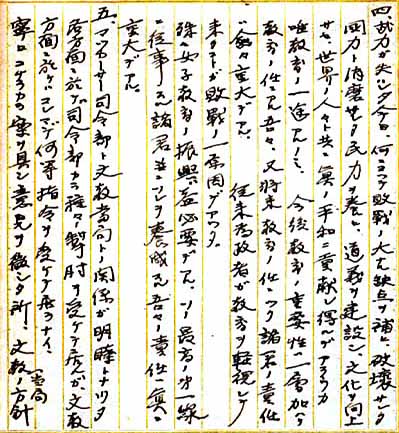 四、武力ガ失シタ今日、何ニヨツテ敗戦ノ大ナ缺点ヲ補ヒ、破壊サレタ
国力ト消磨セル民力ヲ養ヒ、道義ヲ建設シ、文化ヲ向上
サセ、世界ノ人々ト共ニ真ノ平和ニ貢献シ得ルデアラウカ
唯教育ノ一途アルノミ。今後教育ノ重要性ハ一層加ハリ
教育ニ任ズル吾々、又将来教育ノ任ニツク諸君ノ責任
ハ愈々重大デアル。従来為政者ガ教育ヲ軽視シテ
来タコトガ敗戦ノ一素因デアツタ。
殊ニ女子教育ノ振興ハ益必要デアル。ソノ最高ノ第一線
ニ従事スル諸君並ニソレヲ養成スル吾々ノ責任ハ真ニ
重大デアル。
五、マツカーサー司令部ト文教当局トノ関係ガ明瞭トナツタ
各方面ニ於テ司令部カラ種々掣肘ヲ受ケテ居ルガ文教
方面ニ於テハコレマデ何等指令ヲ受ケテ居ラナイ。
寧ロコチラカラ案ヲ具シ意見ヲ徴シタ所、文教ノ方針
(当局